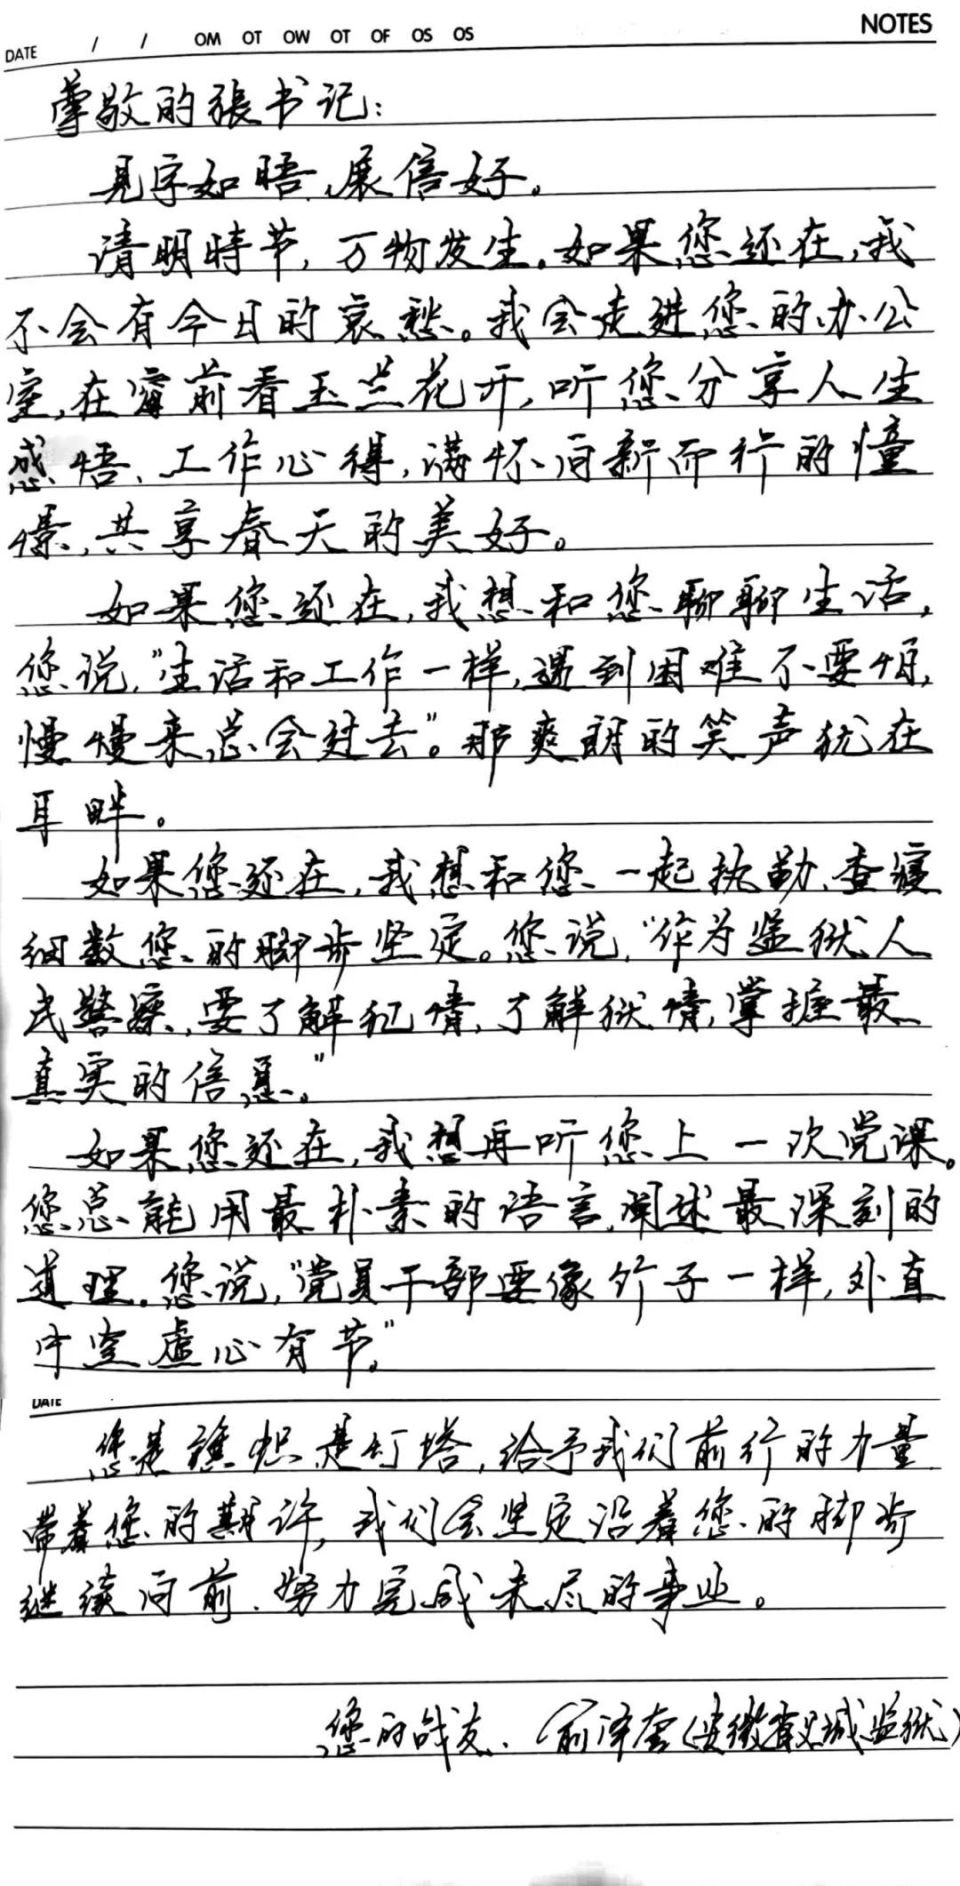 NOTES
DATE / / OM OT OW OT OF OS OS
尊敬的張书记:
見字如晤、展信好。
清明時节,万物发生。如果您还在,我
不会有今日的哀愁。我会走进您的办公
室,在窗前看玉兰花开,听您分享人生
感悟、工作心得,满怀向新而行的憧
憬,共享春天的美好。
如果您还在,我想和您聊聊生活,
您说,"生活和工作一样,遇到困难不要怕,
慢慢来总会过去"。那爽朗的笑声犹在
耳畔。
如果您还在,我想和您一起执勤、查寝
细数您的脚步坚定。您说,"作为监狱人
民警察,要了解犯情,了解狱情,掌握最
真实的信息。"
如果您还在,我想再听您上一次党课。
您总能用最朴素的语言,阐述最深刻的
道理。您说,"党員干部要像竹子一样,外直
中空虚心有节。"
DATE
您是旗帜是灯塔,给予我们前行的力量
带着您的期许,我们会坚定沿着您的脚步
继续向前、努力完成未尽的事业。
您的战友、俞泽奎(安徽省义城监狱)